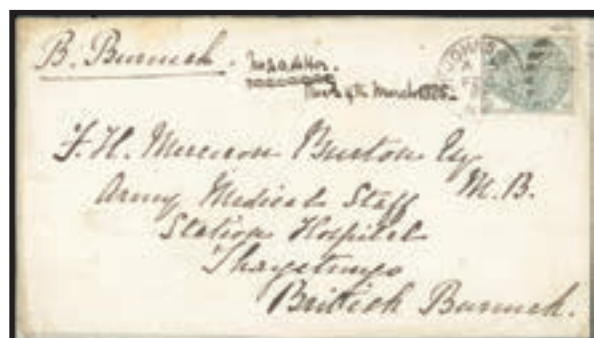 B. Burmah.
March 1886
JOHNS
F. H. Burton Esq
M.B.
Army Medical Staff
Station Hospital
Thayetmyo
British Burmah.